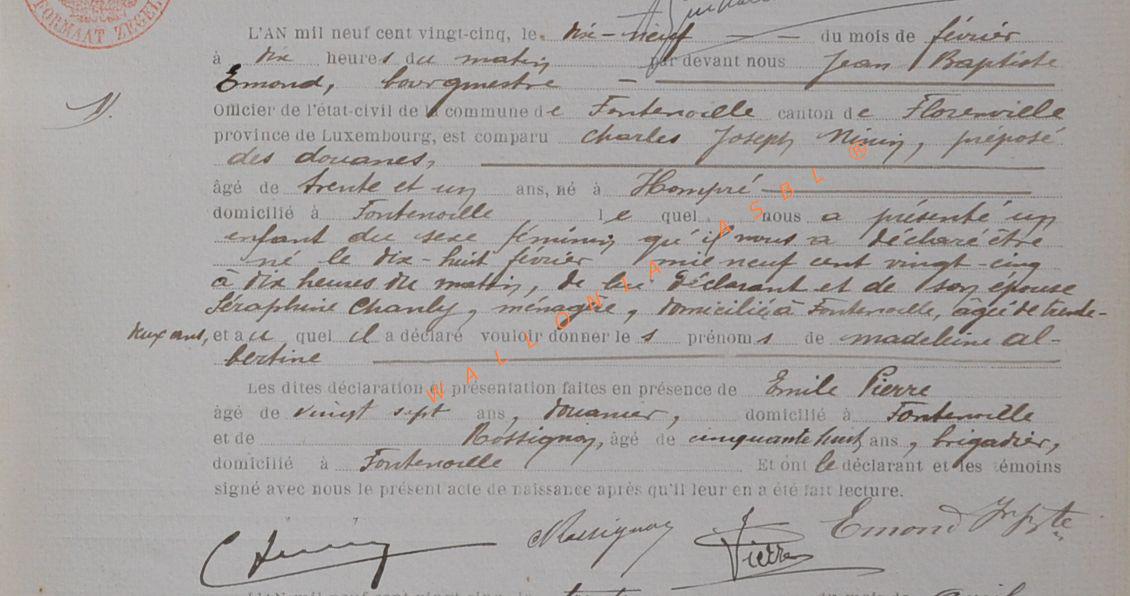 FORMAAT ZEGEL
L'AN mil neuf cent vingt-cinq, le dix-neuf — — du mois de février
à dix heures du matin par devant nous Jean Baptiste
Emond, bourgmestre —
Officier de l'état-civil de la commune de Fontenoille canton de Florenville
province de Luxembourg, est comparu Charles Joseph Ninin, préposé
des douanes,
âgé de trente et un ans, né à Hompré
domicilié à Fontenoille le quel nous a présenté un
enfant du sexe féminin qu'il nous a déclaré être
né le dix-huit février mil neuf cent vingt-cinq
à dix heures du matin, de lui déclarant et de son épouse
Séraphine Chanly, ménagère, domiciliée à Fontenoille, âgée de trente-
deux ans, et au quel il a déclaré vouloir donner les prénoms de Madeleine Al-
bertine
Les dites déclaration et présentation faites en présence de Emile Pierre
âgé de vingt sept ans, douanier, domicilié à Fontenoille
et de Rossignon, âgé de cinquante huit ans, brigadier,
domicilié à Fontenoille Et ont le déclarant et les témoins
signé avec nous le présent acte de naissance après qu'il leur en a été fait lecture.
CNinin Rossignon Pierre Emond
L'AN mil neuf cent vingt-cinq, le du mois de avril
WALLONIA ASBL ®